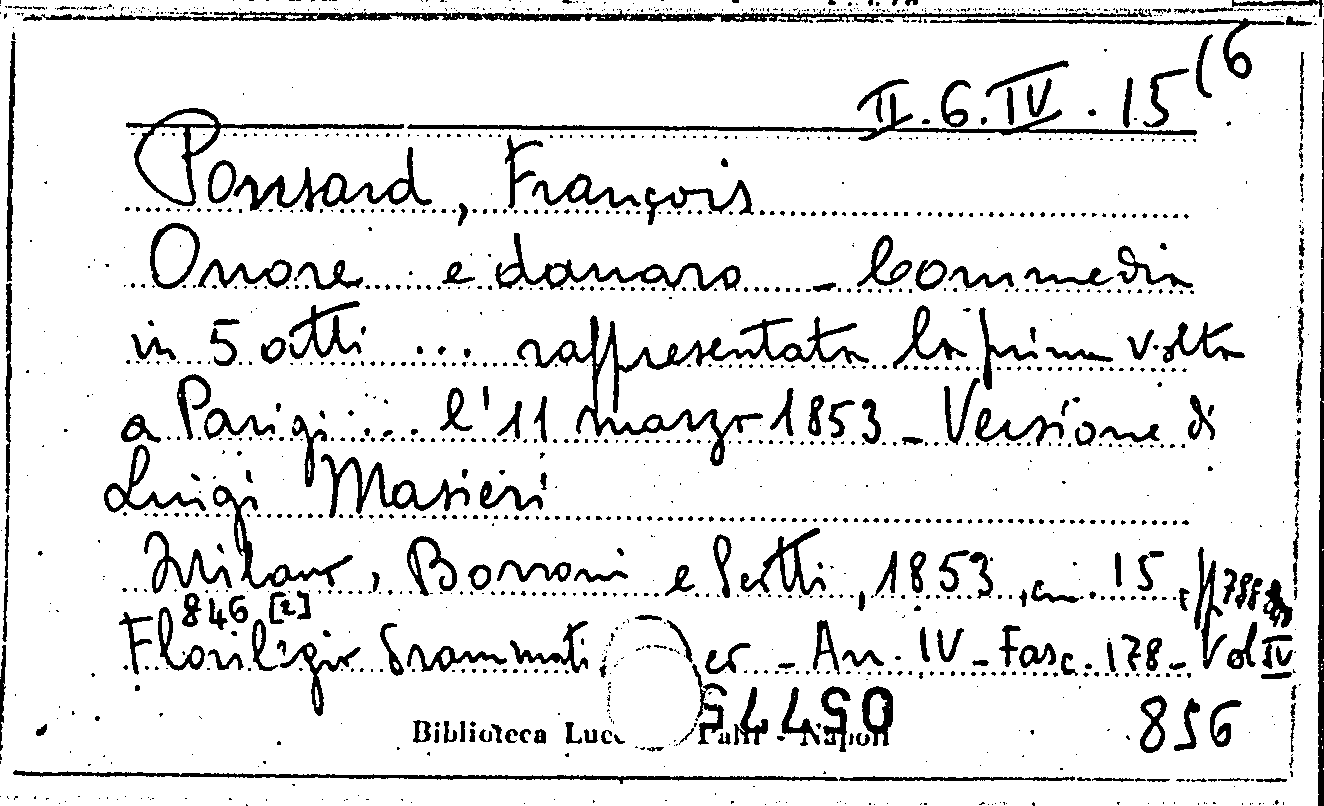 II.6.IV.15(6
Ponsard, François
Onore e danaro - Commedia
in 5 atti ... rappresentata la prima volta
a Parigi ... l'11 marzo 1853 - Versione di
Luigi Masieri
Milano, Borroni e Scotti, 1853, cm. 15, pp. 788
846 [2]
Florilegio drammati er - An. IV - Fasc. 178 - Vol IV
05775
Biblioteca Luc Palli - Napoli
856